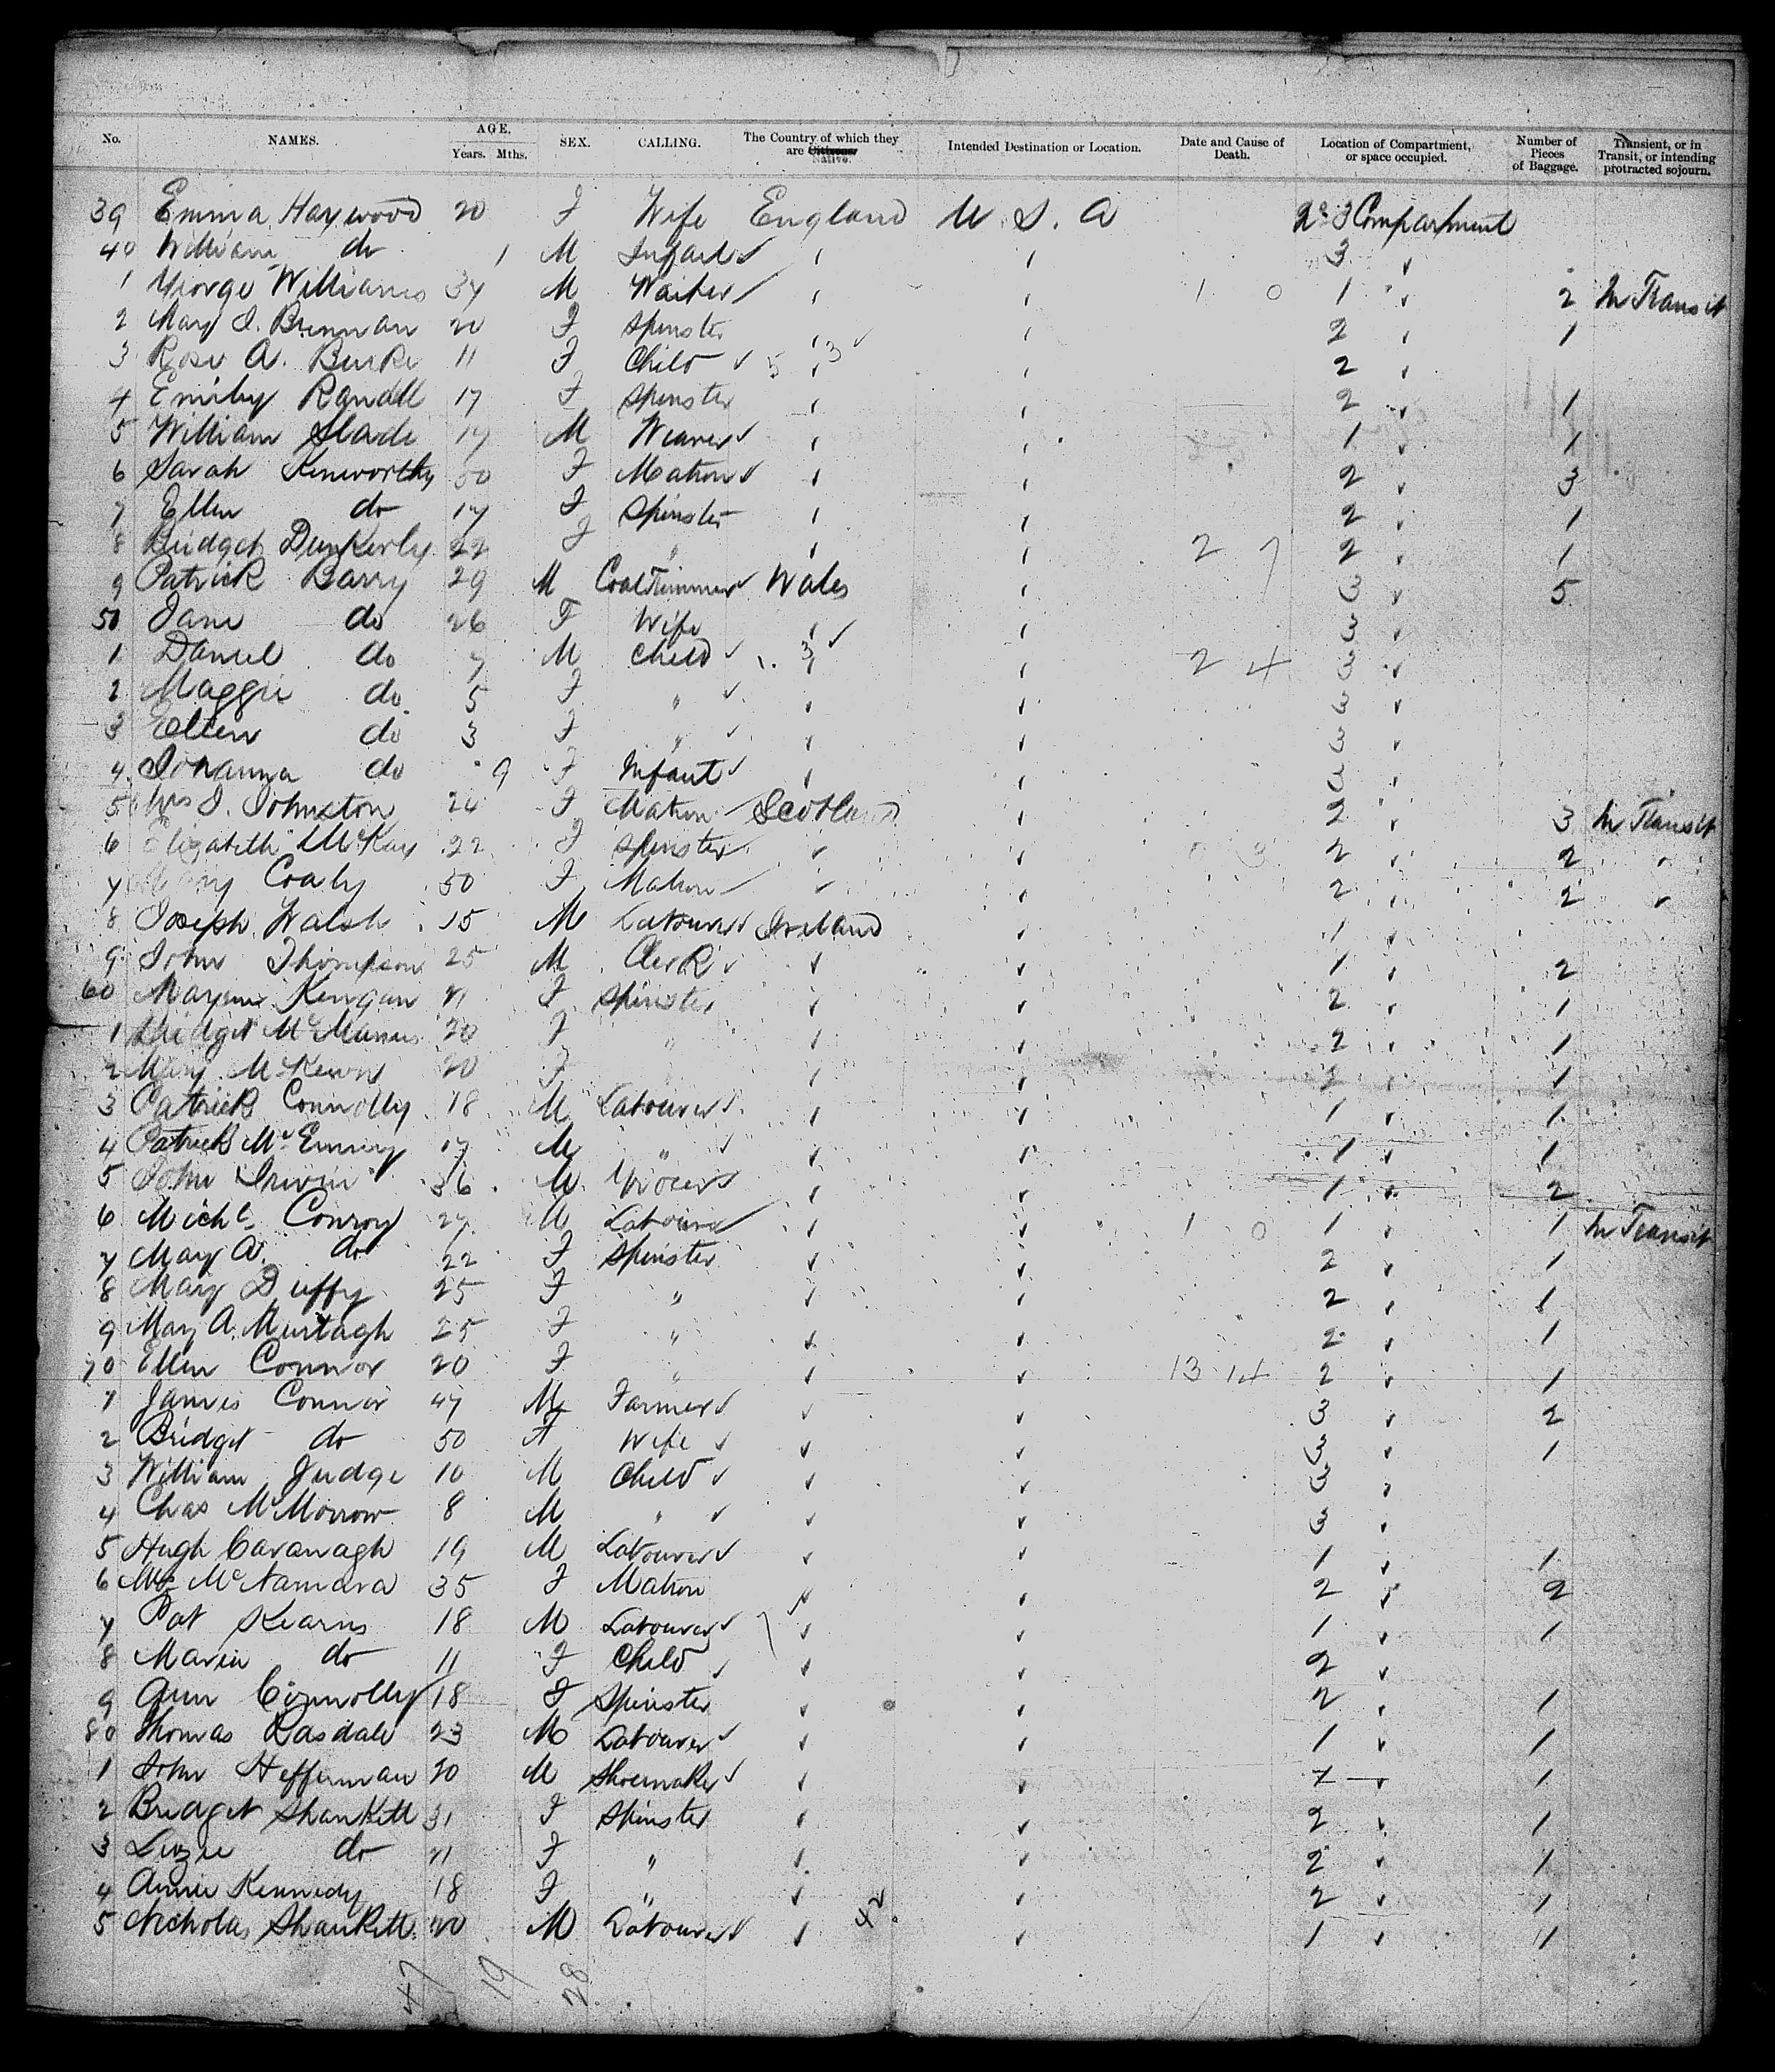 No. NAMES. AGE. Years. Mths. SEX. CALLING. The Country of which they are Citizens. Native. Intended Destination or Location. Date and Cause of Death. Location of Compartment, or space occupied. Number of Pieces of Baggage. Transient, or in Transit, or intending protracted sojourn.
39 Emma Haywood 20 F Wife England U.S.A 2d 3 Compartment
40 William do 1 M Infant ✓ 3
1 George Williams 34 M Waiter 1 0 1 2 In Transit
2 Mary J. Brennan 20 F Spinster 2 1
3 Rose A. Burke 11 F Child ✓ 5 3 ✓ 2
4 Emily Randll 17 F Spinster 2 1
5 William Slade 17 M Weaver ✓ 1 1
6 Sarah Kenworthy 50 F Matron ✓ 2 3
7 Ellen do 17 F Spinster 2 1
8 Bridget Dunkerly 22 F " 2 7 2 1
9 Patrick Barry 29 M Coal Trimmer ✓ Wales 3 5
50 Jane do 26 F Wife ✓ 3
1 Daniel do 7 M Child ✓ 3 2 4 3
2 Maggie do 5 F " ✓ 3
3 Ellen do 3 F " ✓ 3
4 Johanna do 9 F Infant ✓ 3
5 Mrs J. Johnston 24 F Matron Scotland 2 3 In Transit
6 Elizabeth McKay 22 F Spinster 3 2 2 ✓
7 Mary Coaly 50 F Matron 2 2 ✓
8 Joseph Walsh 15 M Labourer Ireland 1
9 John Thompson 25 M Clerk ✓ 1 2
60 Maryanne Kengan 21 F Spinster 2 1
1 Bridget McManus 20 F " 2 1
2 Mary McKeown 20 F 2 1
3 Patrick Connolly 18 M Labourer ✓ 1 1
4 Patrick McEnery 17 M " 1 1
5 John Irwin 36 M Grocer ✓ 1 2
6 Michl Conroy 27 M Labourer 1 0 1 1 In Transit
7 Mary A. do 22 F Spinster 2 1
8 Mary Duffy 25 F " 2 1
9 Mary A. Murtagh 25 F " 2 1
70 Ellen Connor 20 F " 13 14 2 1
1 James Connor 47 M Farmer ✓ 3 2
2 Bridget do 50 F Wife ✓ 3 1
3 William Judge 10 M Child ✓ 3
4 Chas McMorrow 8 M " ✓ 3
5 Hugh Cavanagh 19 M Labourer ✓ 1 1
6 Mrs McNamara 35 F Matron 2 2
7 Pat Kearns 18 M Labourer ✓ 7 1 1
8 Maria do 11 F Child ✓ 2
9 Ann Connolly 18 F Spinster 2 1
80 Thomas Rasdale 23 M Labourer ✓ 1 1
1 John Heffernan 20 M Shoemaker ✓ 1 1
2 Bridget Shankett 31 F Spinster 2 1
3 Lizzie do 21 F " 2 1
4 Annie Kennedy 18 F " 2 1
5 Nicholas Shankett 40 M Labourer ✓ 42 1 11
47 19 28